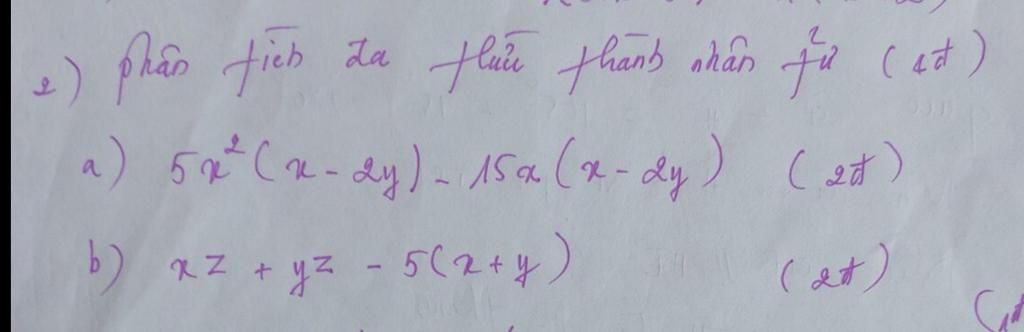 2) phân tích đa thức thành nhân tử (1đ)
a) 5x²(x - 2y) - 15x(x - 2y) (2đ)
b) xz + yz - 5(x + y) (2đ)
(1đ